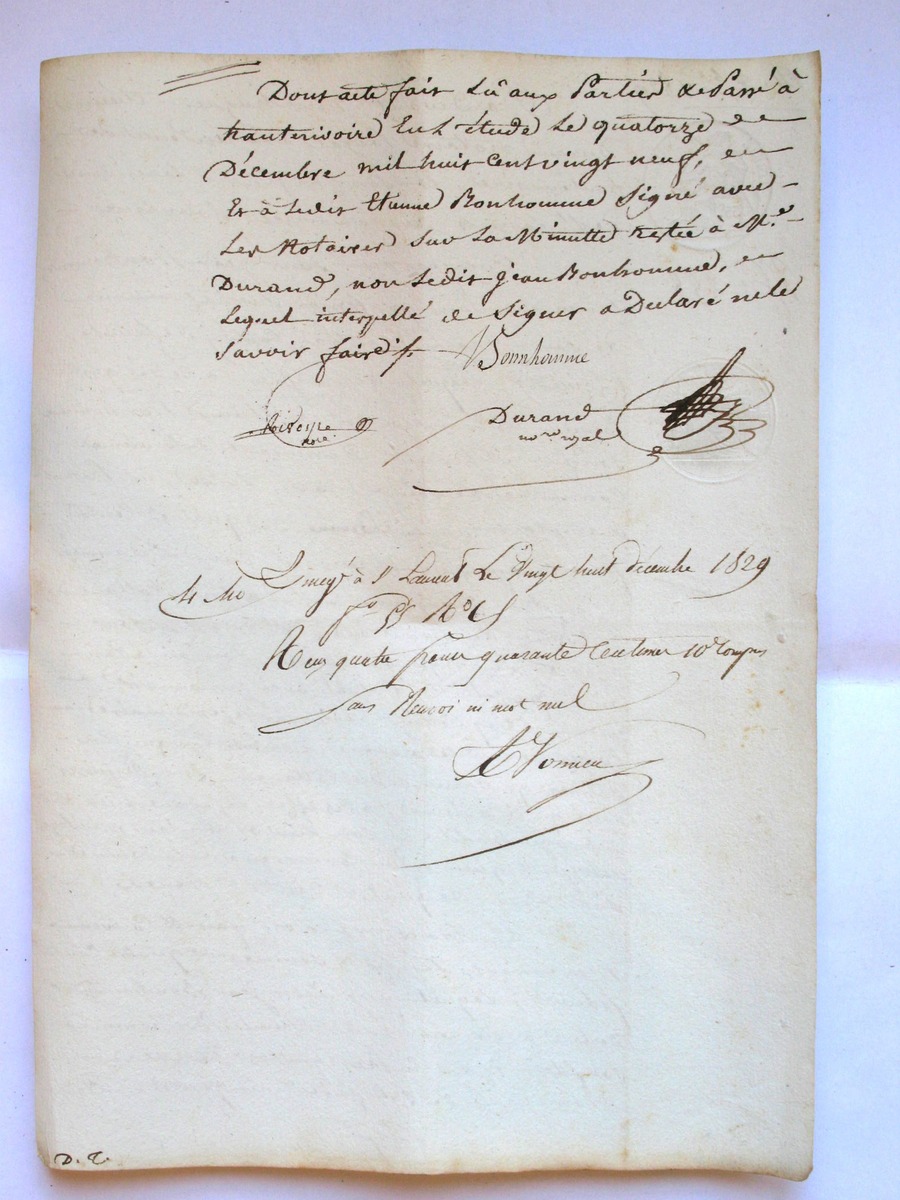 Dont acte fait Lû aux Parties de Passé à
hauterivoire En L'étude Le quatorze de
Décembre mil huit cent vingt neuf, en
Et à Ledit Etienne Bonhomme Signé avec
Les Notaires sur La Minutte restée à M.e
Durand, non Ledit jean Bonhomme, en
Lequel interpellé de Signer a Déclaré ne le
Savoir faire
Bonnhomme
Durand
no.re royal
4 40 à St Laurent Le Vingt huit décembre 1829
f.o R.o
Reçu quatre francs quarante Centimes 10.e Compris
Sans Renvoi ni mot nul
D. T.